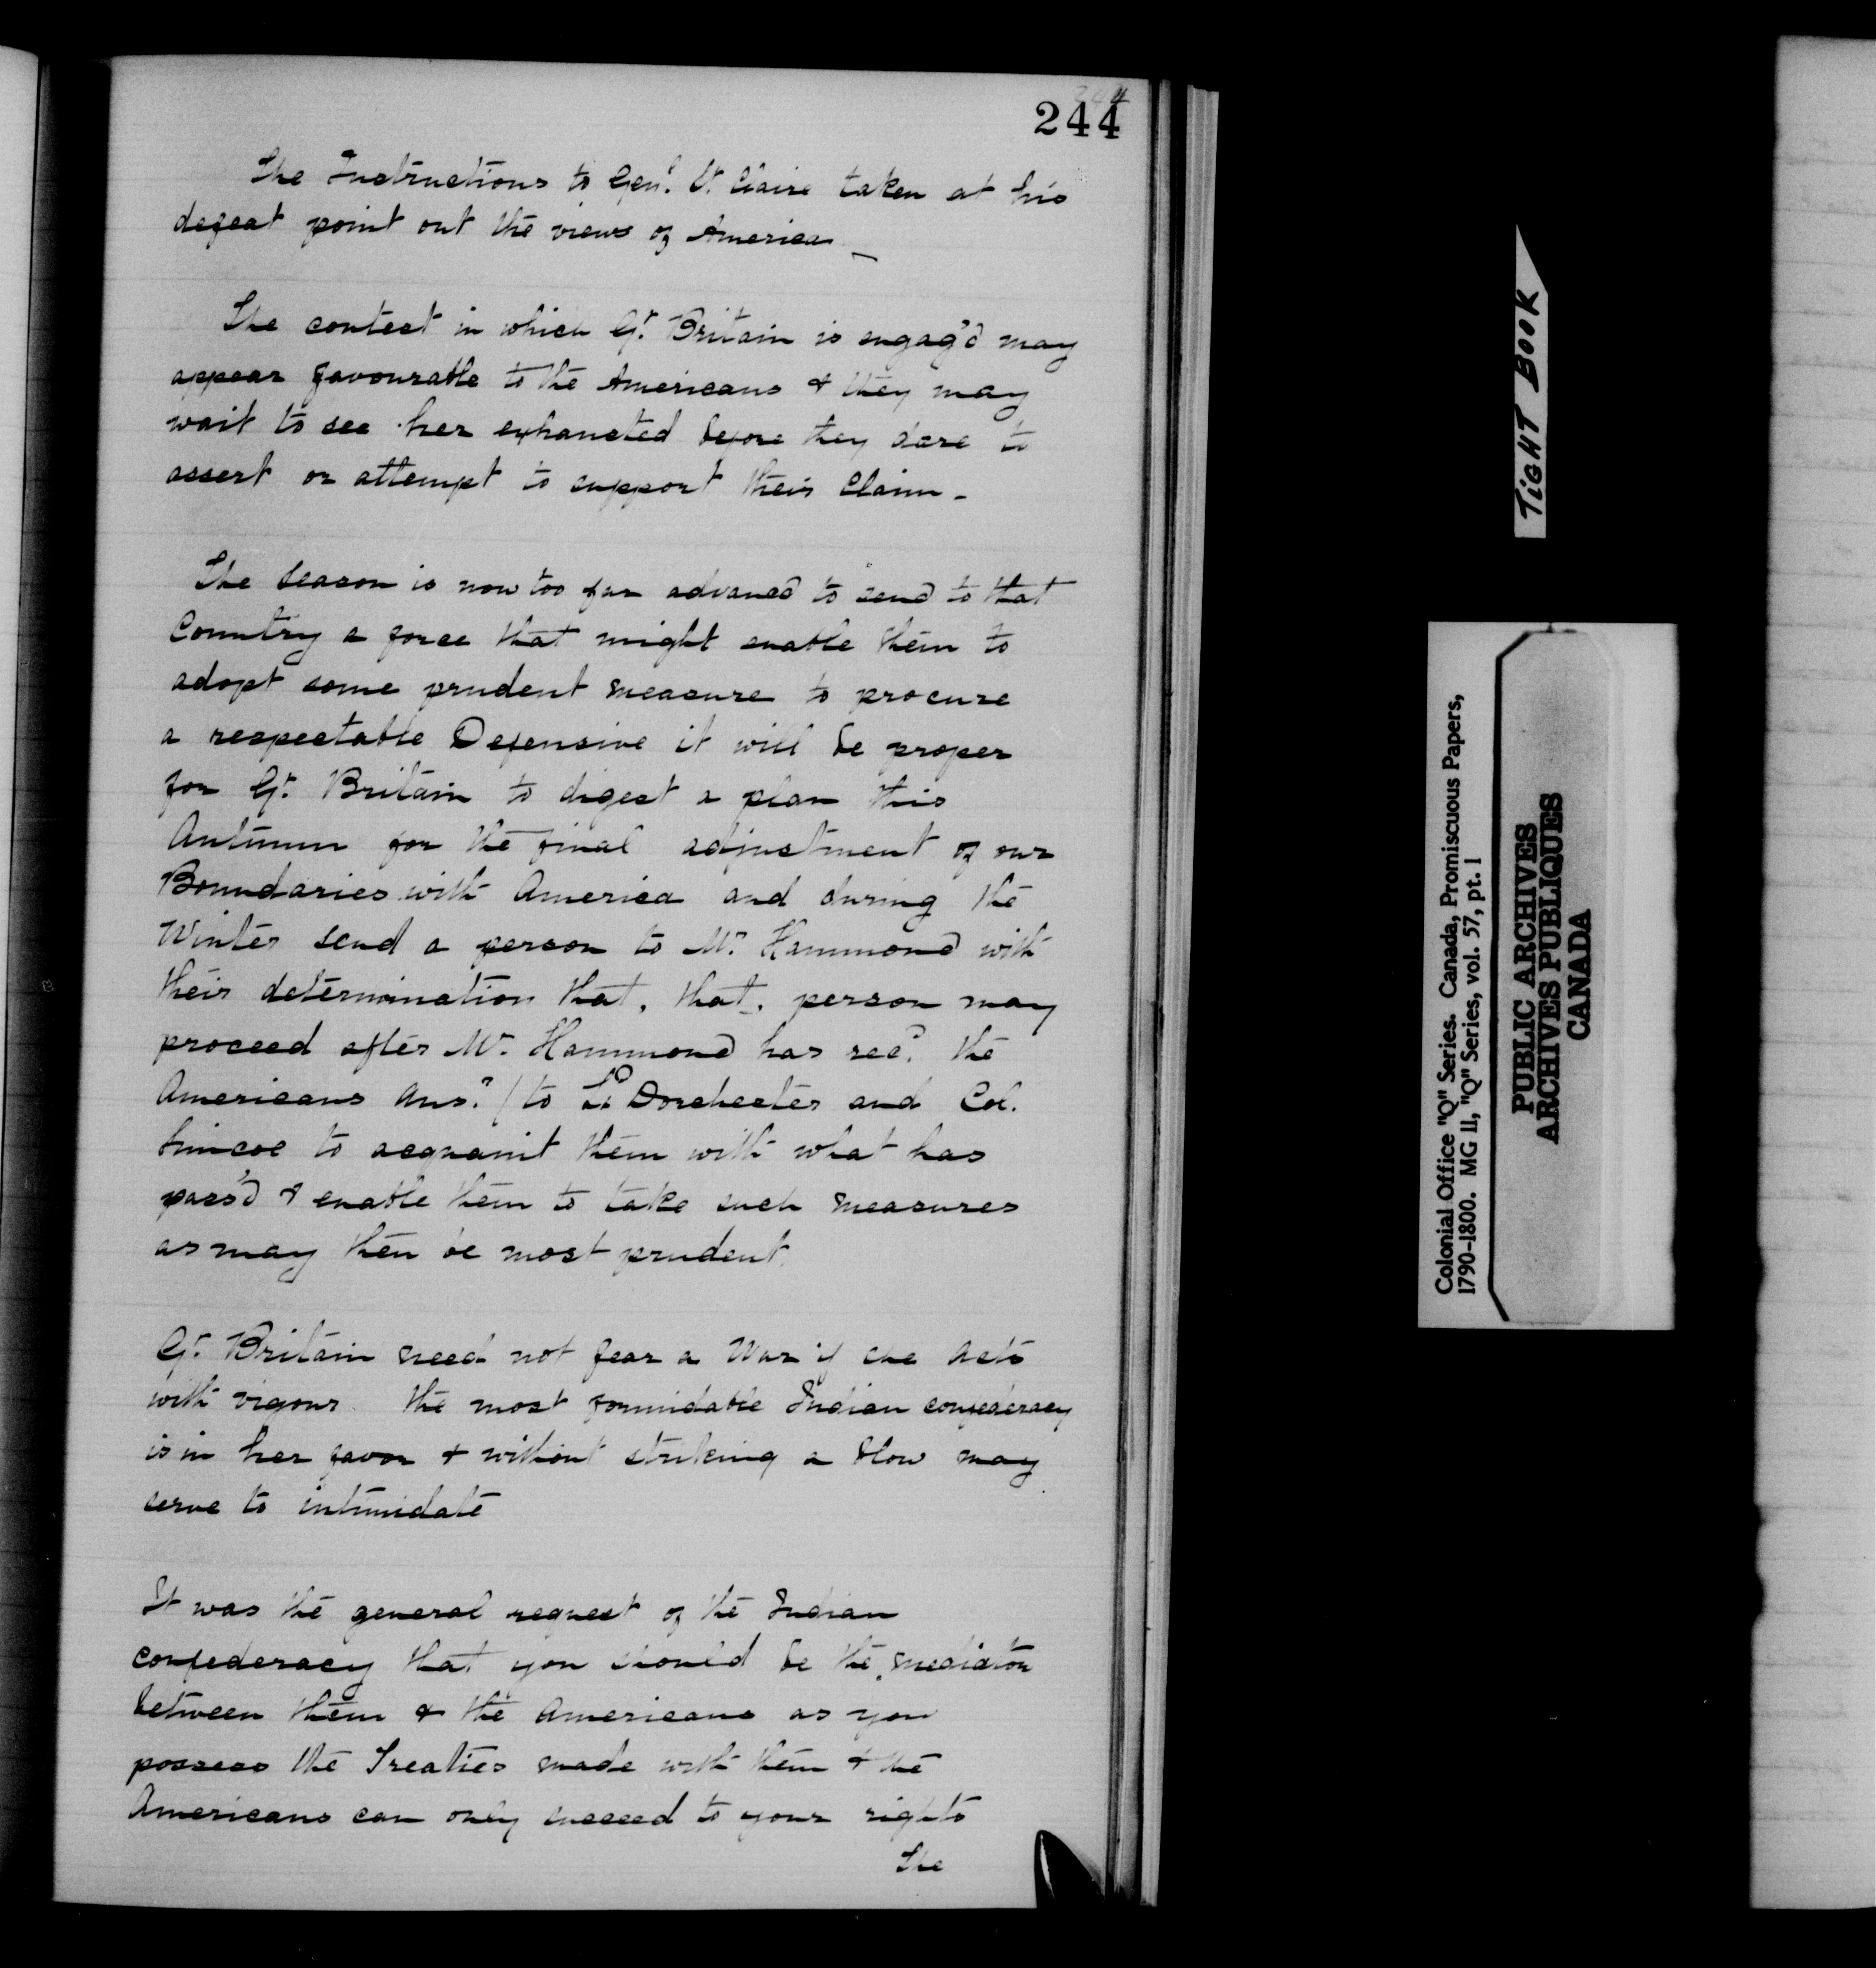 244
The Instructions to Genl. St. Claire taken at his
defeat point out the views of America
The contest in which Gt. Britain is engag'd may
appear favourable to the Americans & they may
wait to see her exhausted before they dare to
assert or attempt to support their Claim -
The Season is now too far advanced to send to that
Country a force that might enable them to
adopt some prudent measure to procure
a respectable Defensive it will be proper
for Gt. Britain to digest a plan this
Autumn for the final adjustment of our
Boundaries with America and during the
Winter send a person to Mr. Hammond with
their determination that, that, person may
proceed after Mr. Hammond has recd. the
Americans Ansr. / to Ld Dorchester and Col.
Simcoe to acquaint them with what has
pass'd & enable them to take such measures
as may then be most prudent.
Gt. Britain need not fear a War if she Acts
with vigour. the most formidable Indian confederacy
is in her favor & without striking a blow may
serve to intimidate
It was the general request of the Indian
confederacy that you should be the mediator
between them & the Americans as you
possess the Treaties made with them & the
Americans can only succeed to your rights
The
TIGHT BOOK
Colonial Office "Q" Series. Canada, Promiscuous Papers,
1790-1800. MG 11, "Q" Series, vol. 57, pt. 1
PUBLIC ARCHIVES
ARCHIVES PUBLIQUES
CANADA